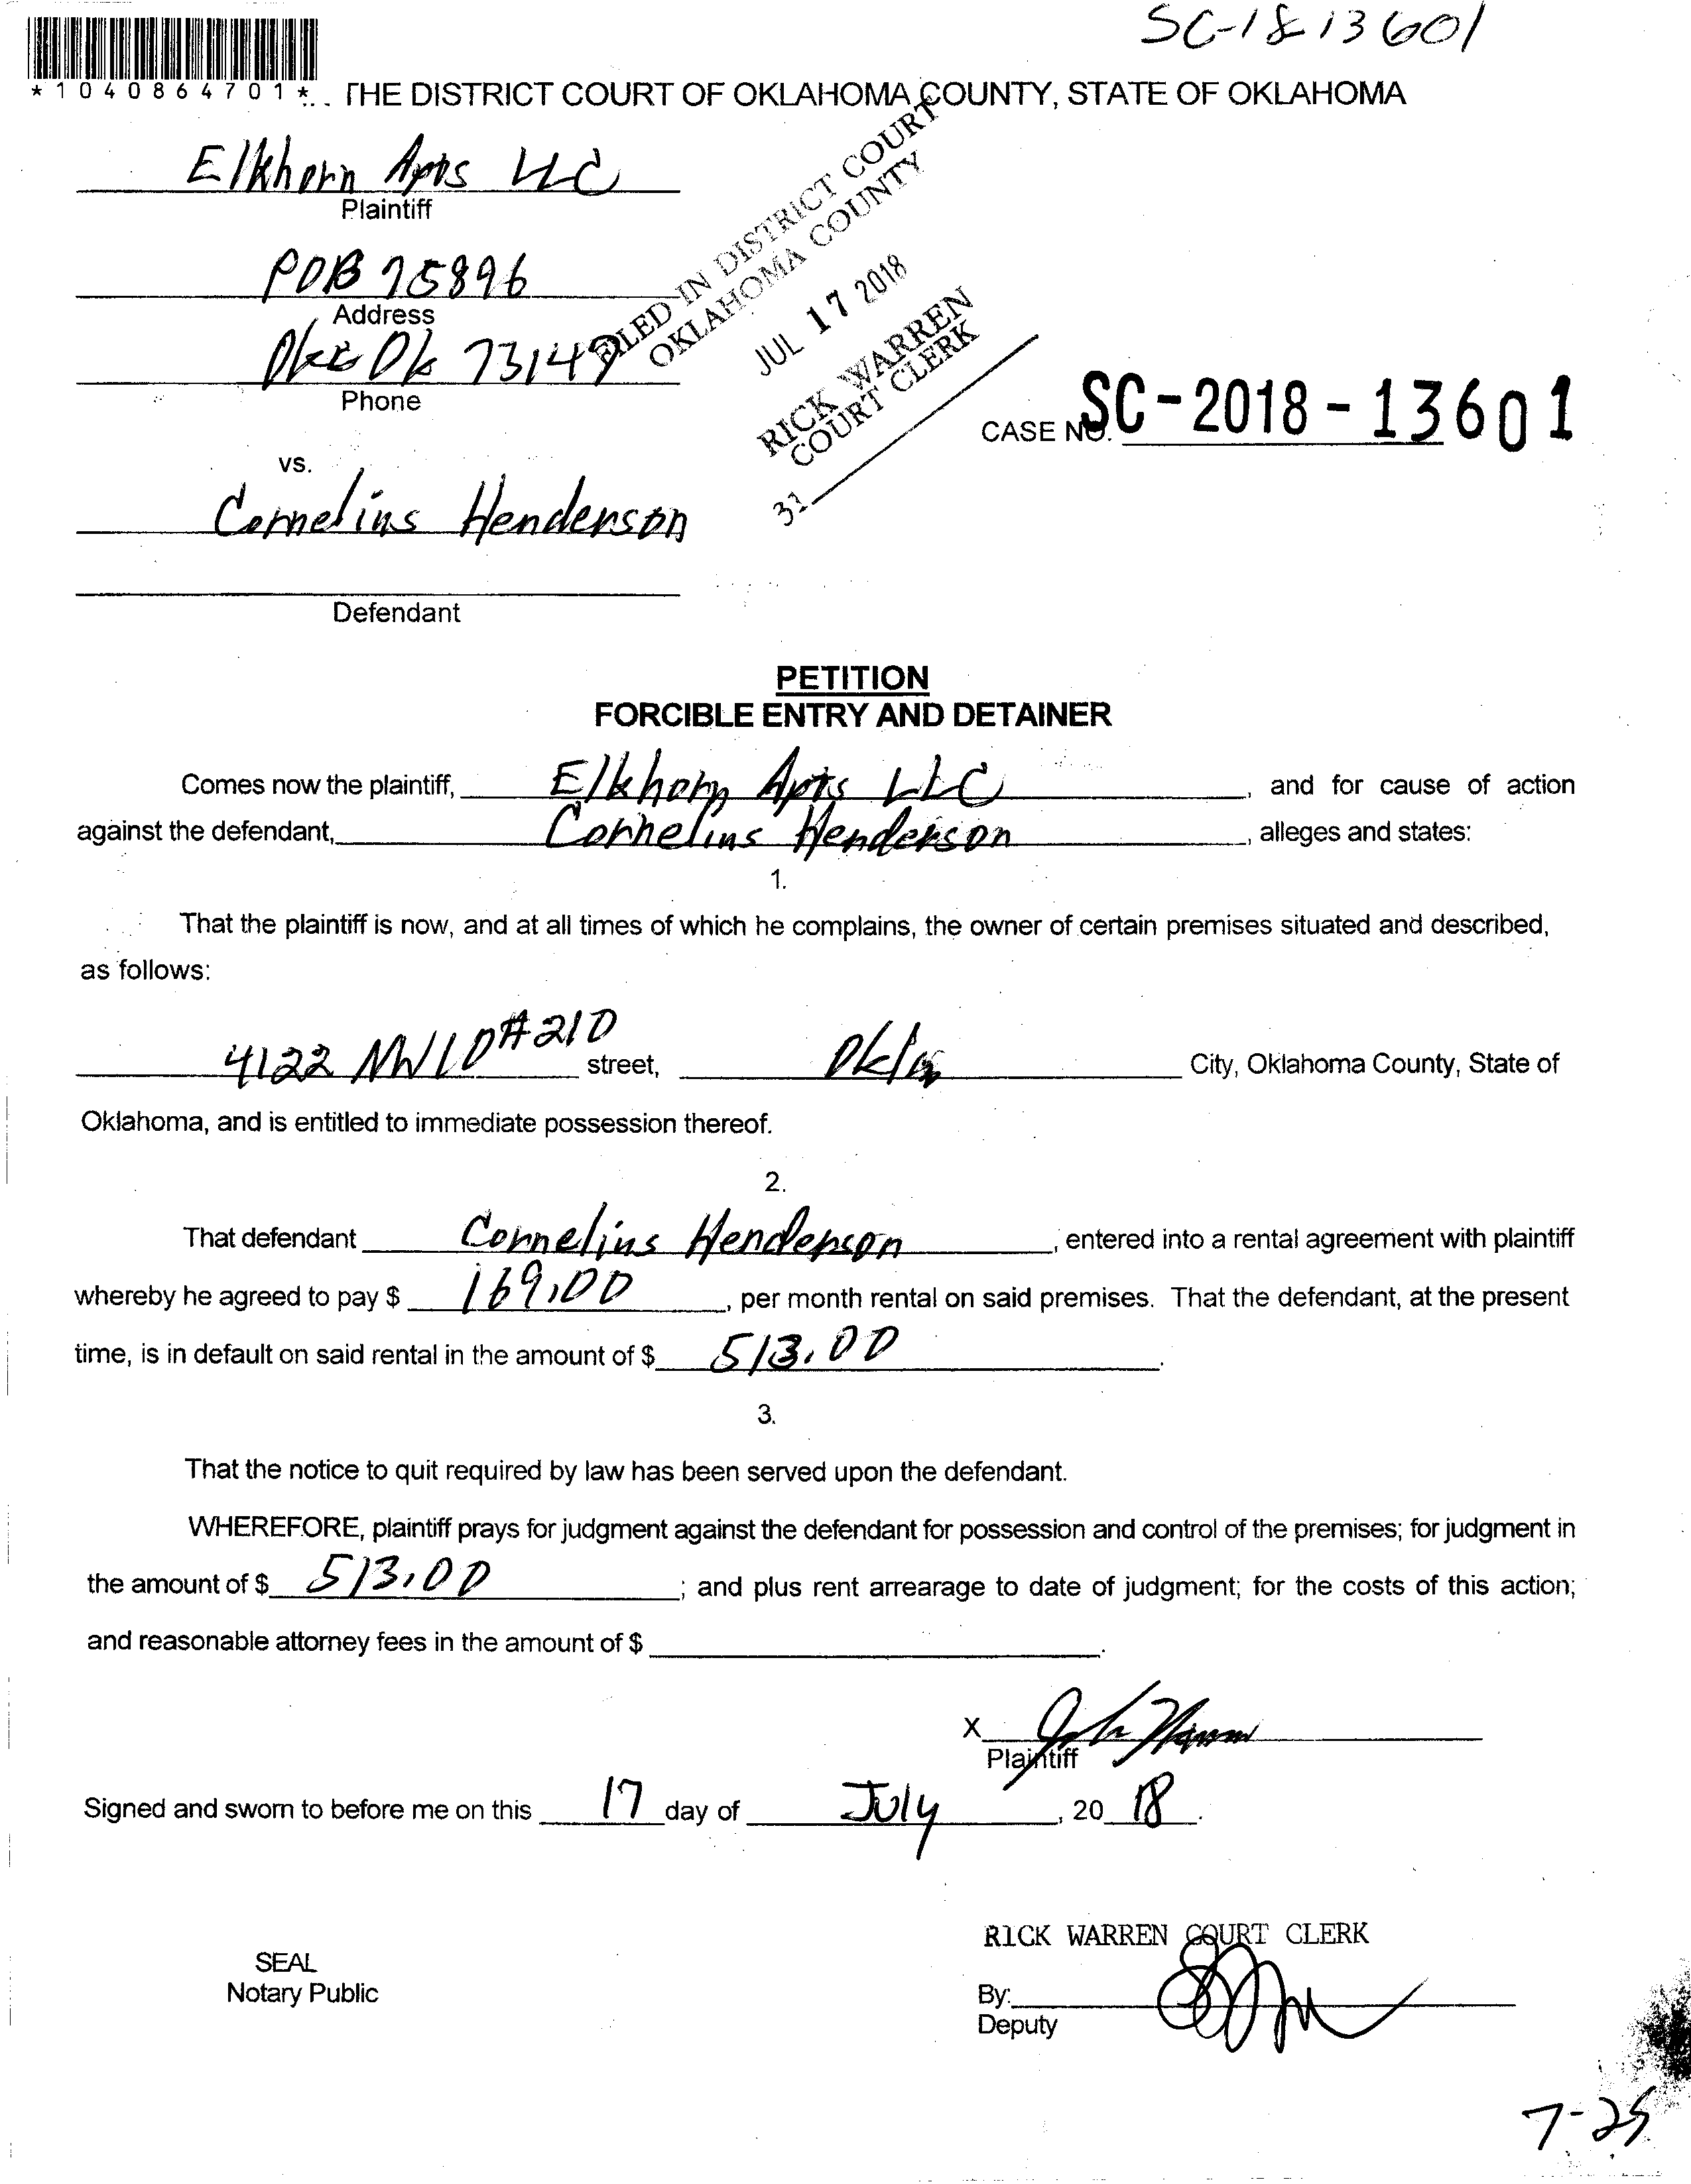 SC-18 13601
*1040864701*
THE DISTRICT COURT OF OKLAHOMA COUNTY, STATE OF OKLAHOMA
Elkhorn Apts LLC
Plaintiff
POB 75896
Address
Okc Ok 73147
Phone
FILED IN DISTRICT COURT
OKLAHOMA COUNTY
JUL 17 2018
RICK WARREN
COURT CLERK
31
CASE NO. SC-2018-13601
vs.
Cornelius Henderson
Defendant
PETITION
FORCIBLE ENTRY AND DETAINER
Comes now the plaintiff, Elkhorn Apts LLC, and for cause of action
against the defendant, Cornelius Henderson, alleges and states:
1.
That the plaintiff is now, and at all times of which he complains, the owner of certain premises situated and described,
as follows:
4122 NW10 #210 street, Okla City, Oklahoma County, State of
Oklahoma, and is entitled to immediate possession thereof.
2.
That defendant Cornelius Henderson, entered into a rental agreement with plaintiff
whereby he agreed to pay $ 169.00, per month rental on said premises. That the defendant, at the present
time, is in default on said rental in the amount of $ 513.00.
3.
That the notice to quit required by law has been served upon the defendant.
WHEREFORE, plaintiff prays for judgment against the defendant for possession and control of the premises; for judgment in
the amount of $ 513.00; and plus rent arrearage to date of judgment; for the costs of this action;
and reasonable attorney fees in the amount of $ .
X
Plaintiff
Signed and sworn to before me on this 17 day of July, 20 18.
RICK WARREN COURT CLERK
SEAL
Notary Public
By:
Deputy
7-25